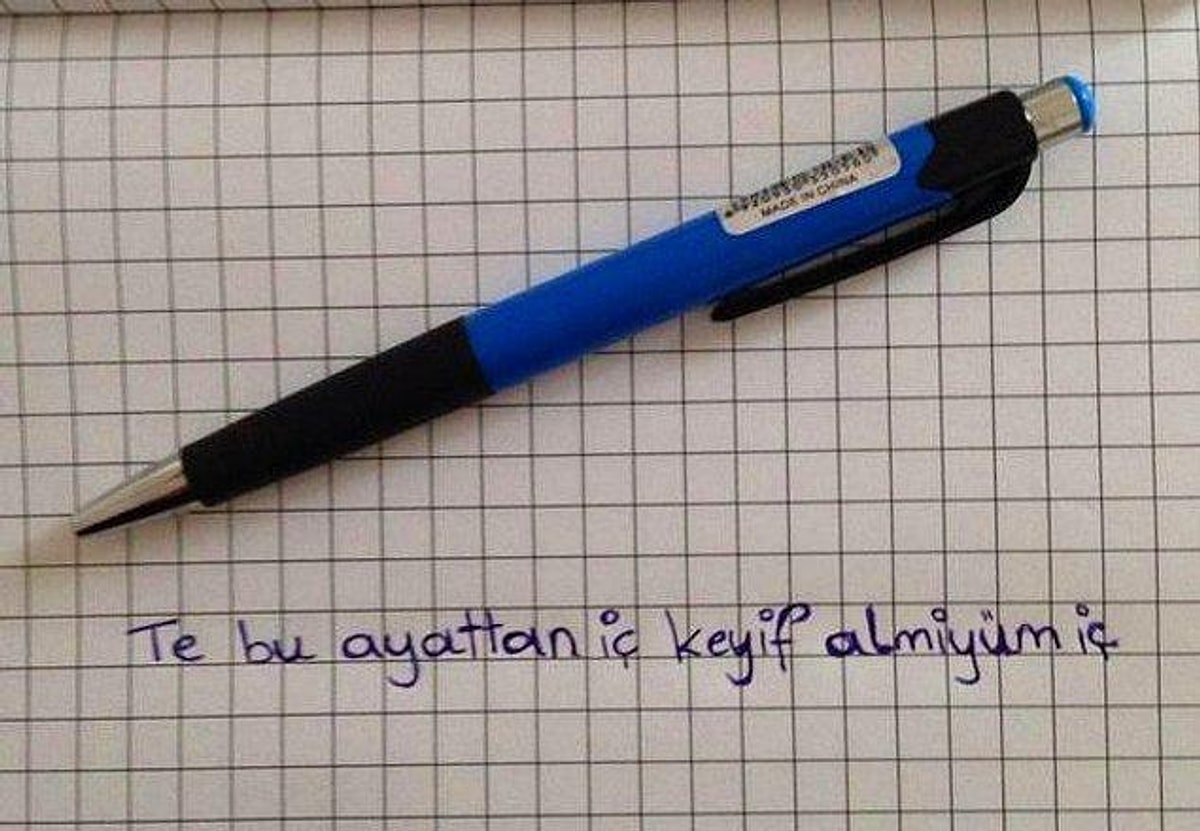 MADE IN CHINA
Te bu ayattan iç keyif almiyüm iç